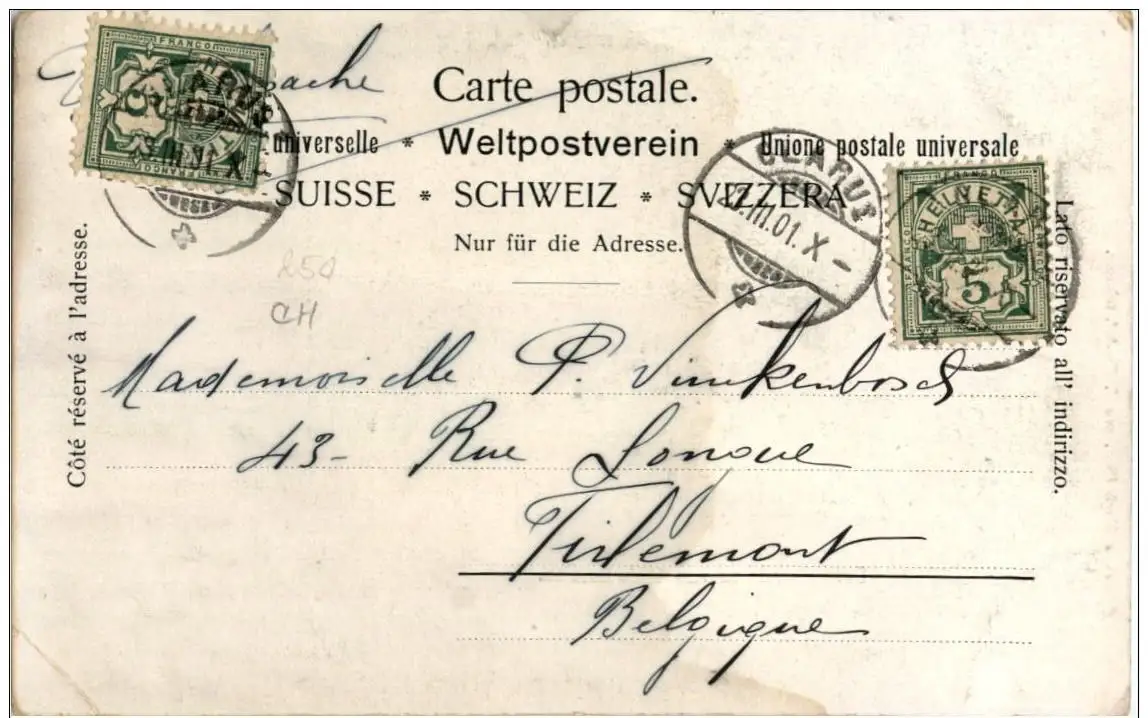 Carte postale.
universelle * Weltpostverein * Unione postale universale
SUISSE * SCHWEIZ * SVIZZERA
Nur für die Adresse.
Côté réservé à l'adresse.
Lato riservato all' indirizzo.
FRANCO
5
GLARUS
.III.01.X–
FRANCO
HELVETIA
5
250
CH
Mademoiselle P. Vinckenbosch
43– Rue Longue
Tirlemont
Belgique